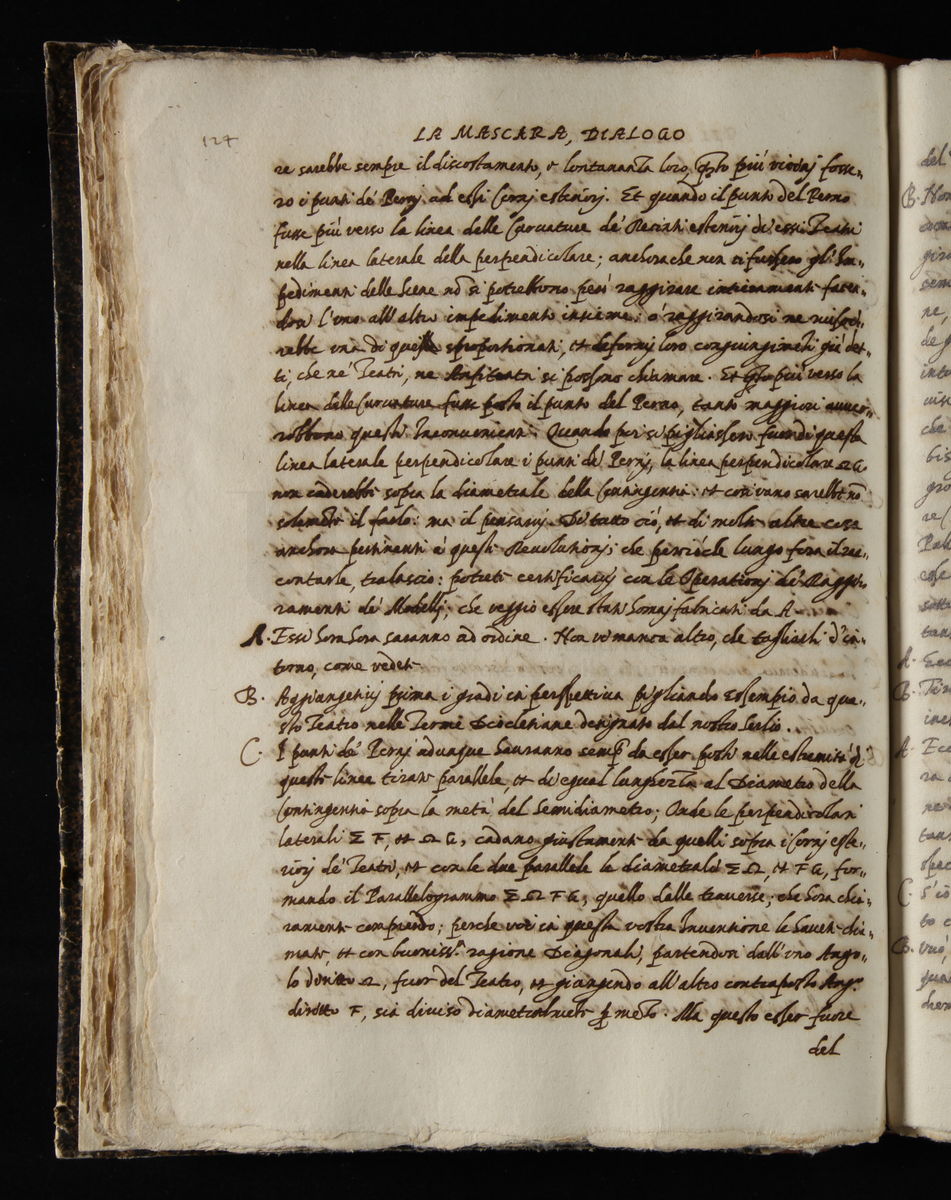 127
LA MASCARA, DIALOGO
re sarebbe sempre il discostamento, e lontananza loro, qto più vicini fosse„
ro i punti de' Perni ad essi Corni esteriori. Et quando il punto del Perno
fusse più verso la linea delle Curvature de' Recinti esteriori di essi Teatri
nella linea laterale della perpendicolare; anchora che non vi fussero gl'Im„
pedimenti delle Scene nō si potrebbono però raggirare interamente facen„
dosi l'uno all'altro impedimento insieme: ò raggirandosi ne
rebbe una di quelle sproportionati, et deformi loro congiungimenti già det„
ti, che ne' Teatri, ne Anfiteatri si possono chiamare. Et qto più verso la
linea delle Curvature fusse posto il punto del Perno, tanto maggiori
questi Inconvenienti. Quando poi si pigliassero fuori di questa
linea laterale perpendicolare i punti de' Perni, la linea perpendicolare Ω G
non caderebbe sopra la diametrale della Contingentia: et così vano sarebbe nō
solamente il farlo: ma il pensarvi. Di tutto ciò, et di molte altre cose
anchora pertinenti à queste Revolutioni; che perciòche lungo fora il rac„
contarle, tralascio: potrete certificarvi con le Operationi de' Raggi„
ramenti de' Modelli, che veggio essere stati homai fabricati da A
A. Essi hora hora saranno ad ordine. Non vi manca altro, che tagliarli d'in„
torno, come vedete
B. Aggiungetevi prima i gradi in perspettiva pigliando essempio da que„
sto Teatro nelle Terme Diocletiane designato dal nostro Serlio.
C. I punti de' Perni adunque hauranno sempre da esser posti nelle estremità di
queste linee tirate parallele, et di egual lunghezza al Diametro della
Contingentia sopra la metà del Semidiametro; Onde le perpendicolari
laterali Σ F, et Ω G, cadano giustamente da quelli sopra i Corni este„
riori de' Teatri, et con le due parallele le diametrali Σ Ω, et F G, for„
mando il Parallelogrammo Σ Ω F G, quello delle traverse; che hora chia„
ramente comprendo; perche voi in questa vostra Inventione le havete chia„
mate, et con buonissa ragione Diagonali, partendosi dall'uno Ango„
lo diritto Ω, fuor del Teatro, et giungendo all'altro contraposto Ango
diritto F, sia diviso diametralmente per mezo. Ma questo esser fuore
del